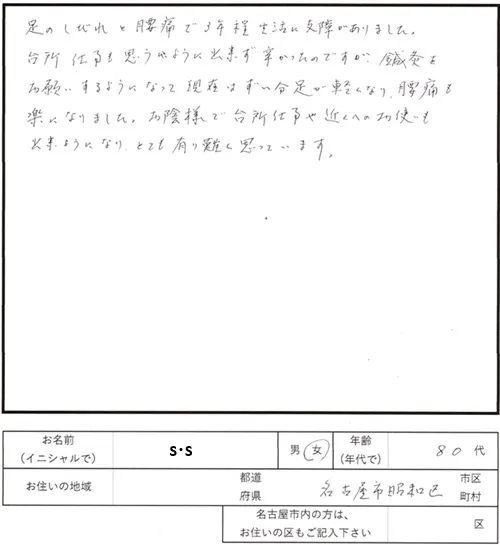 足のしびれと腰痛で3年程生活に支障がありました。
台所仕事も思うように出来ず辛かったのですが、鍼灸を
お願いするようになって現在はずい分足が軽くなり、腰痛も
楽になりました。お陰様で台所仕事や近くへのお使いも
出来ようになり、とても有り難く思っています。
お名前
(イニシャルで)
S・S
男 女
年齢
(年代で)
80代
お住いの地域
都道
府県
名古屋市昭和区
市区
町村
名古屋市内の方は、
お住いの区もご記入下さい
区